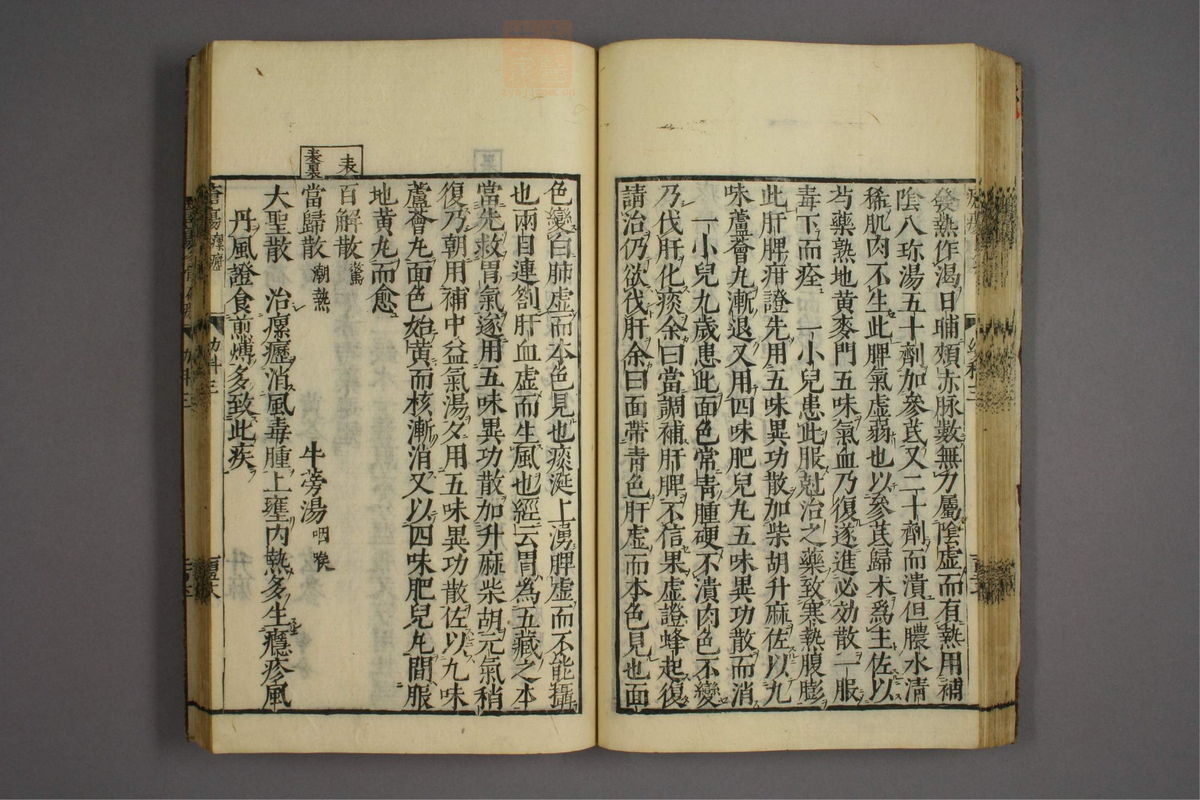 發熱作渴日晡頰赤脉數無力屬陰虛而有熱用補
陰八珎湯五十劑加參芪又二十劑而潰但膿水清
稀肌肉不生此脾氣虛弱也以參芪歸木爲主佐以
芍藥熟地黃麥門五味氣血乃復遂進必効散一服
毒下而痊 一小兒患此服尅治之藥致寒熱腹膨
此肝脾疳證先用五味異功散加柴胡升麻佐以九
味蘆薈丸漸退又用四味肥兒丸五味異功散而消
一小兒九歲患此面色常青腫硬不潰肉色不變
乃伐肝化痰余曰當調補肝脾不信果虛證蜂起復
請治仍欲伐肝余曰面帶青色肝虛而本色見也面
色變白肺虛而本色見也痰涎上湧脾虛而不能攝
也兩目連劄肝血虛而生風也經云胃爲五藏之本
當先救胃氣遂用五味異功散加升麻柴胡元氣稍
復乃朝用補中益氣湯夕用五味異功散佐以九味
蘆薈丸面色始黃而核漸消又以四味肥兒丸間服
地黃丸而愈
表
百解散 驚
表裏
當歸散 潮熱 牛蒡湯 咽喉
大聖散 治瘰癧消風毒腫上壅內熱多生癮疹風
丹風證食煎煿多致此疾
瘡瘍 瘰癧
幼科三